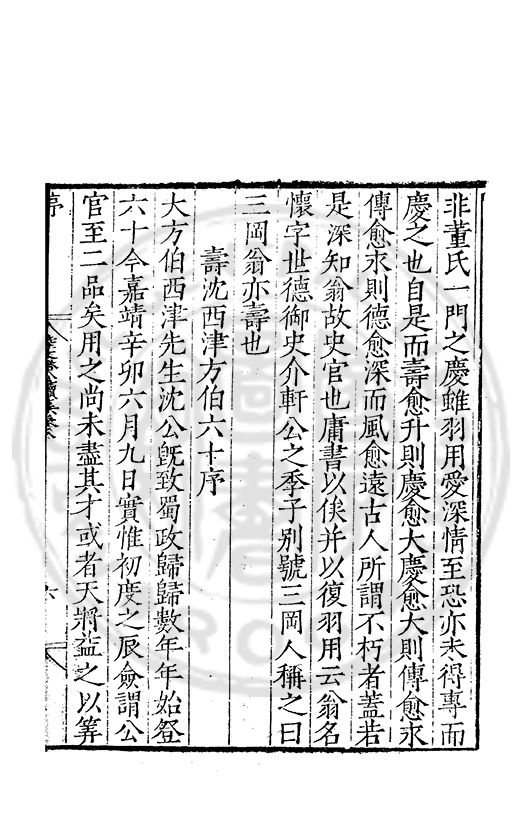 非董氏一門之慶雖羽用愛深情至恐亦未得專而
慶之也自是而壽愈升則慶愈大慶愈大則傳愈永
傳愈永則德愈深而風愈遠古人所謂不朽者蓋若
是深知翁故史官也庸書以俟并以復羽用云翁名
懷字世德御史介軒公之季子别號三岡人稱之曰
三岡翁亦壽也
壽沈西津方伯六十序
大方伯西津先生沈公旣致蜀政歸歸數年年始登
六十今嘉靖辛卯六月九日實惟初度之辰僉謂公
官至二品矣用之尚未盡其才或者天將益之以筭
六